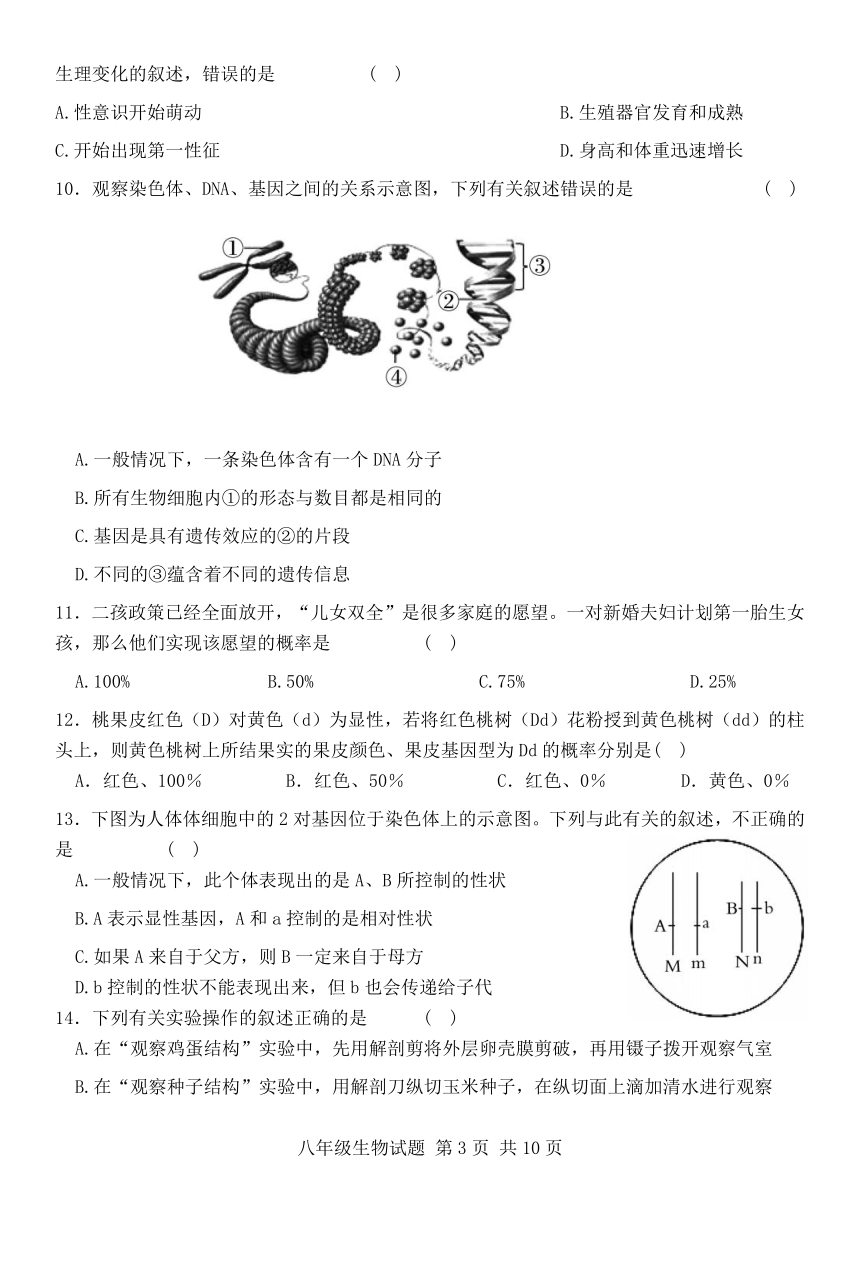 生理变化的叙述，错误的是 ( )
A.性意识开始萌动 B.生殖器官发育和成熟
C.开始出现第一性征 D.身高和体重迅速增长
10．观察染色体、DNA、基因之间的关系示意图，下列有关叙述错误的是 ( )
① ③ ② ④
A.一般情况下，一条染色体含有一个 DNA 分子
B.所有生物细胞内①的形态与数目都是相同的
C.基因是具有遗传效应的②的片段
D.不同的③蕴含着不同的遗传信息
11．二孩政策已经全面放开，“儿女双全”是很多家庭的愿望。一对新婚夫妇计划第一胎生女
孩，那么他们实现该愿望的概率是 ( )
A.100% B.50% C.75% D.25%
12．桃果皮红色（D）对黄色（d）为显性，若将红色桃树（Dd）花粉授到黄色桃树（dd）的柱
头上，则黄色桃树上所结果实的果皮颜色、果皮基因型为 Dd 的概率分别是( )
A．红色、100％ B．红色、50％ C．红色、0％ D．黄色、0％
13．下图为人体体细胞中的 2 对基因位于染色体上的示意图。下列与此有关的叙述，不正确的
是 ( )
A.一般情况下，此个体表现出的是 A、B 所控制的性状
B.A 表示显性基因，A 和 a 控制的是相对性状
C.如果 A 来自于父方，则 B 一定来自于母方
D.b 控制的性状不能表现出来，但 b 也会传递给子代
A a B b
M m N n
14．下列有关实验操作的叙述正确的是 ( )
A.在“观察鸡蛋结构”实验中，先用解剖剪将外层卵壳膜剪破，再用镊子拨开观察气室
B.在“观察种子结构”实验中，用解剖刀纵切玉米种子，在纵切面上滴加清水进行观察
八年级生物试题 第 3 页 共 10 页